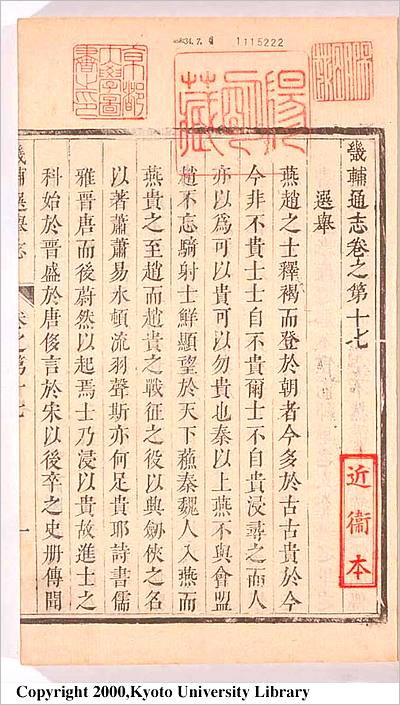 34. 7. 1115222
京都
大學圖
書之印
陽明藏
近衞本
畿輔通志卷之第十七
選舉
燕趙之士釋褐而登於朝者今多於古古貴於今
今非不貴士士自不貴爾士不自貴浸尋之而人
亦以爲可以貴可以勿貴也秦以上燕不與會盟
趙不忘騎射士鮮顯望於天下蘓秦魏人入燕而
燕貴之至趙而趙貴之戰征之役以興劒俠之名
以著蕭蕭易水頓流羽聲斯亦何足貴耶詩書儒
雅晉唐而後蔚然以起焉士乃浸以貴故進士之
科始於晉盛於唐俊言於宋以後卒之史册傳聞
畿輔選舉志
卷之第十七
一
Copyright 2000,Kyoto University Library